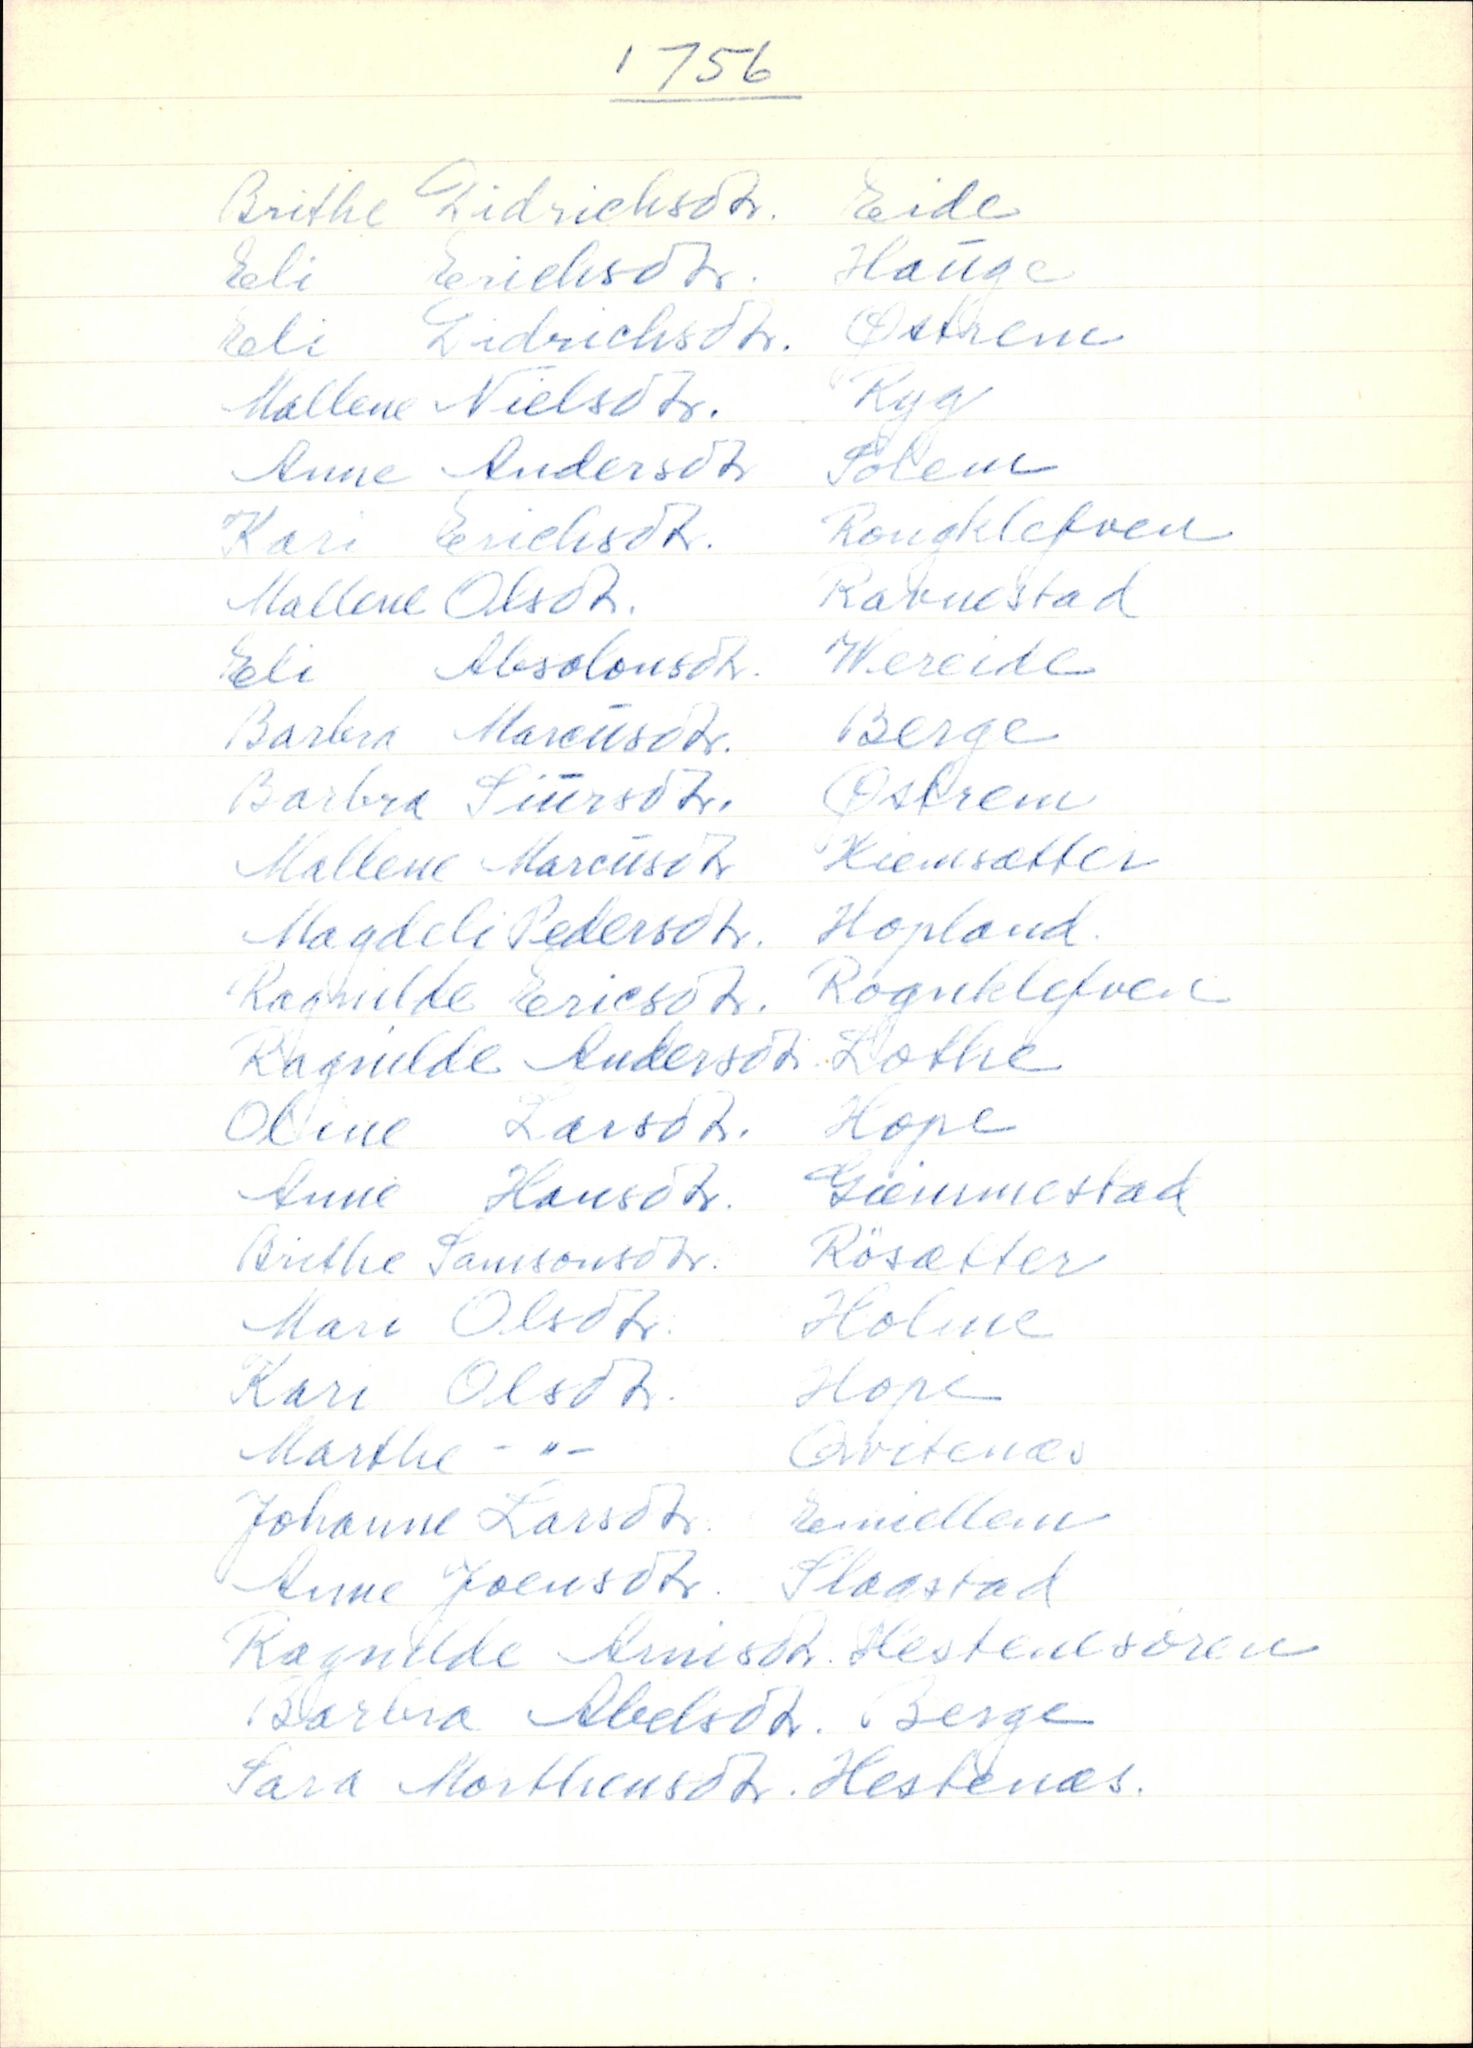 1756
Brithe Didrichsdtr. Eide
Eli Erichsdtr. Hauge
Eli Didrichsdtr. Østrem
Mallene Nielsdtr. Ryg
Anne Andersdtr Solem
Kari Erichsdtr. Rongklefven
Mallene Olsdtr. Ravnestad
Eli Absolonsdtr. Wereide
Barbra Marcusdtr. Berge
Barbra Siursdtr. Østrem
Mallene Marcusdtr Hiemsætter
Magdeli Pedersdtr. Hopland.
Ragnilde Ericsdtr. Rognklefven
Ragnilde Andersdtr. Lothe
Oline Larsdtr. Hope
Anne Hansdtr. Giemmestad
Brithe Samsonsdtr. Rösætter
Mari Olsdtr. Holme
Kari Olsdtr. Hope
Marthe -"- Qvitenæs
Johanne Larsdtr. Emiellem
Anne Joensdtr. Slagstad
Ragnilde Arnisdtr. Hestenesøren
Barbra Abelsdtr. Berge
Sara Morthensdtr. Hestenæs.